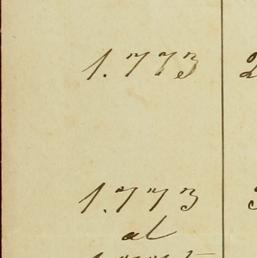 1.773
1.773
al